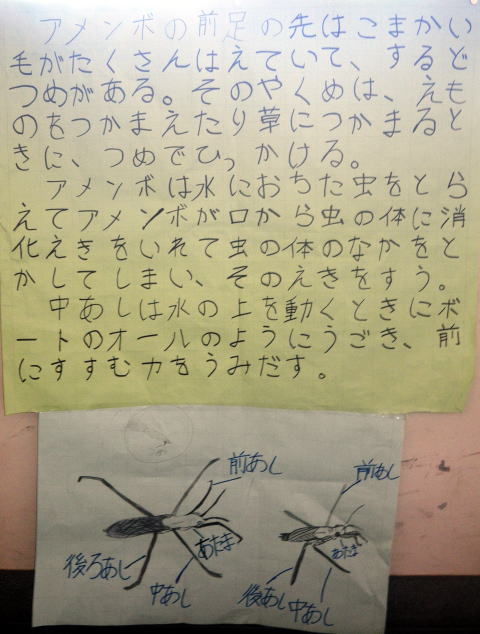 アメンボの前足の先はこまかい
毛がたくさんはえていて、するど
つめがある。そのやくめは、えも
のをつかまえたり草につかまると
きに、つめでひっかける。
アメンボは水におちた虫をとら
えてアメンボが口から虫の体に消
化えきをいれて虫の体のなかをと
かしてしまい、そのえきをすう。
中あしは水の上を動くときにボ
ートのオールのようにうごき、前
にすすむ力をうみだす。
前あし
あたま
後ろあし
中あし
前あし
あたま
後あし
中あし